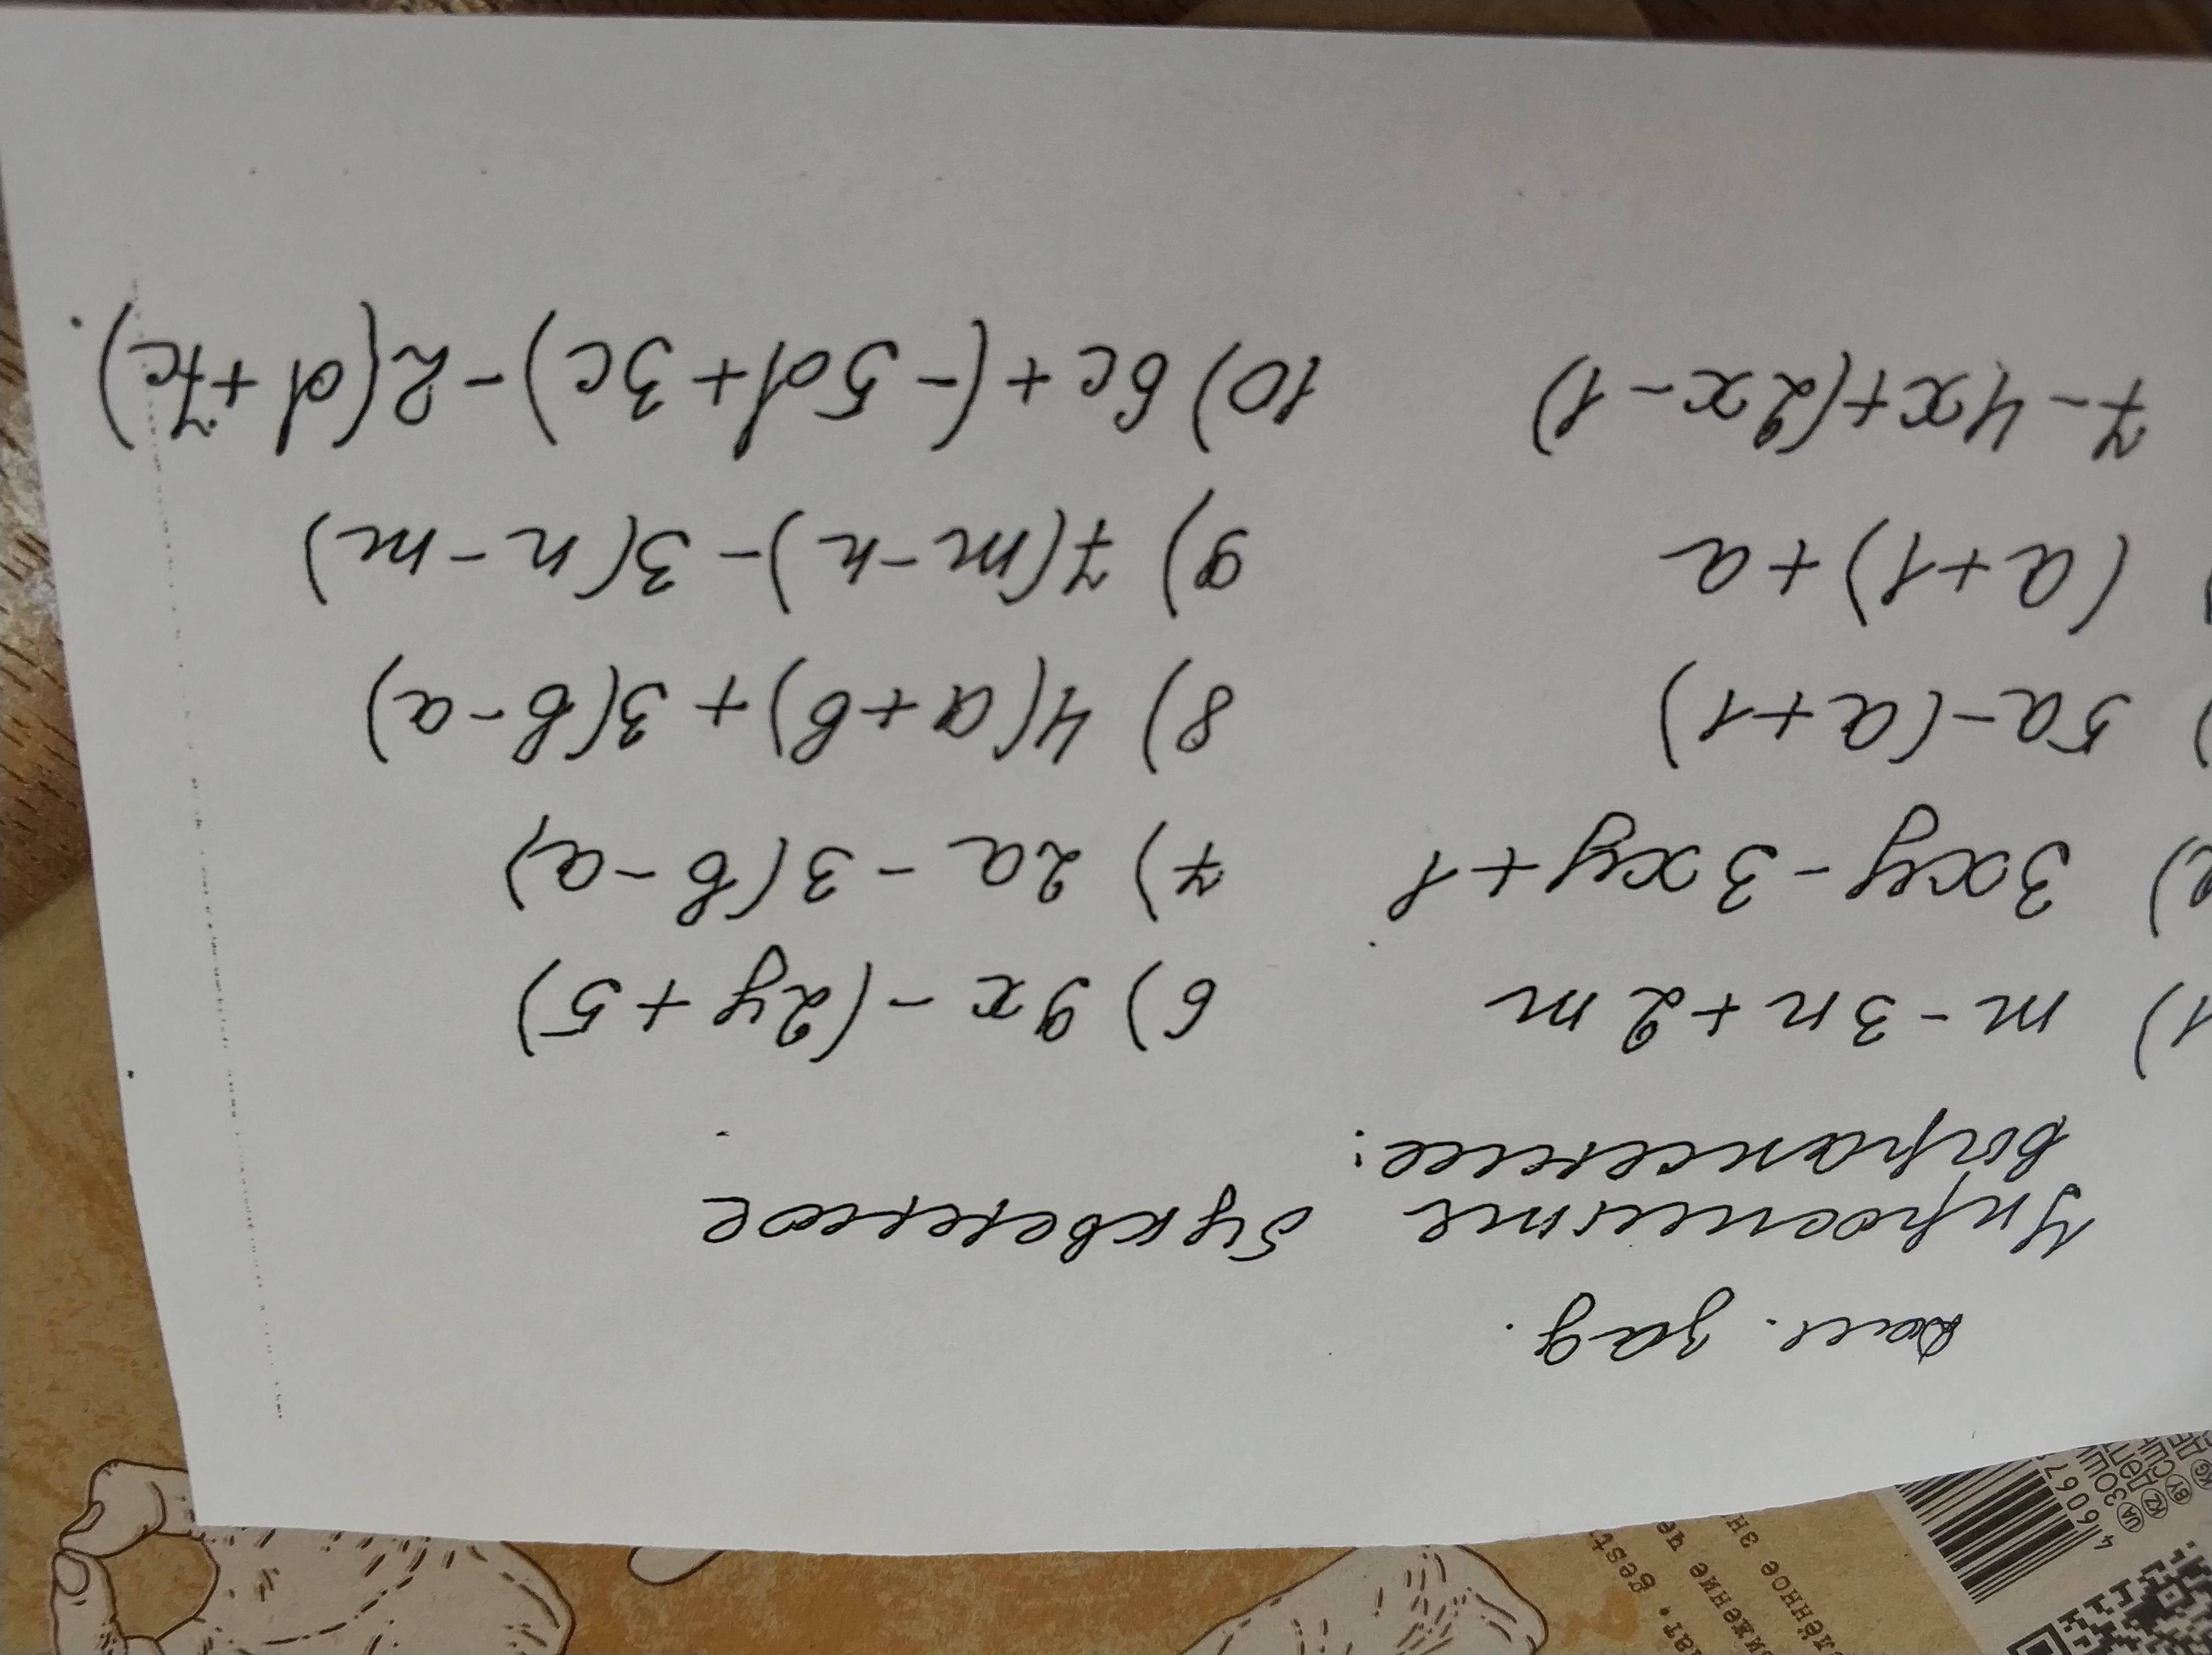 дом. зад.
Упростите буквенное
выражение:
1) m - 3n + 2m
2) 3xy - 3xy + 1
) 5a - (a + 1)
) (a + 1) + a
7 - 4x + (2x - 1)
6) 9x - (2y + 5)
7) 2a - 3(b - a)
8) 4(a + b) + 3(b - a)
9) 7(m - n) - 3(n - m)
10) 6c + (-5d + 3c) - 2(d + 7c)
46067
UA
KZ
BY
KG